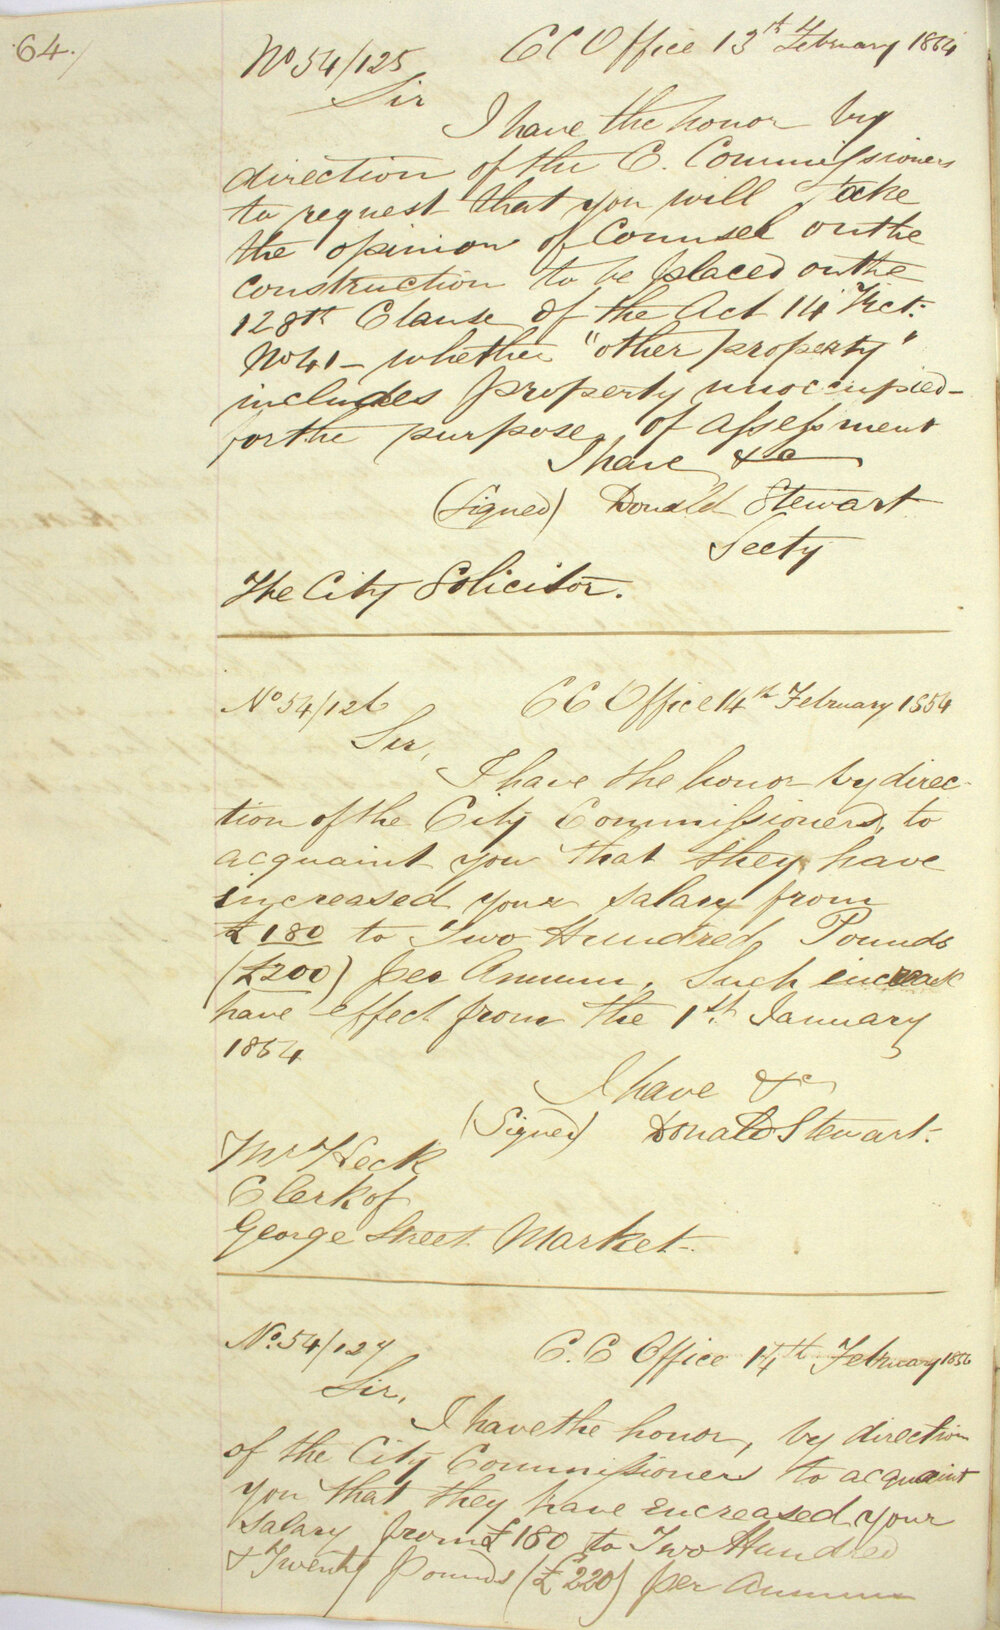 64.
No 54/125 CC Office 13th February 1854
Sir
I have the honor by
direction of the C. Commissioners
to request that you will take
the opinion of Counsel on the
construction to be placed on the
128th Clause of the Act 14 Vict:
No 41 - whether "other property"
includes property unoccupied -
for the purpose of assessment
I have &c
(Signed) Donald Stewart
Secty
The City Solicitor.
No 54/126 CC Office 14th February 1854
Sir,
I have the honor by direc-
tion of the City Commissioners, to
acquaint you that they have
increased your salary from
£180 to Two Hundred Pounds
(£200) per Annum, Such increase
have effect from the 1st. January
1854
I have &c
(Signed) Donald Stewart.
Mr Heck
Clerk of
George Street Market.
No. 54/127 C.C Office 14th February 1854
Sir,
I have the honor, by direction
of the City Commissioners to acquaint
you that they have encreased your
salary from £180 to Two Hundred
& Twenty Pounds (£220) per annum